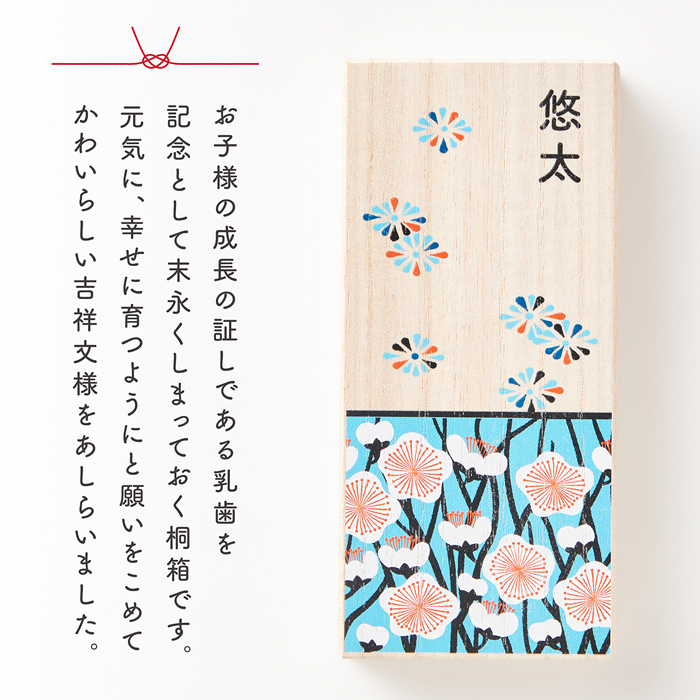 お子様の成長の証しである乳歯を
記念として末永くしまっておく桐箱です。
元気に、幸せに育つようにと願いをこめて
かわいらしい吉祥文様をあしらいました。
悠太